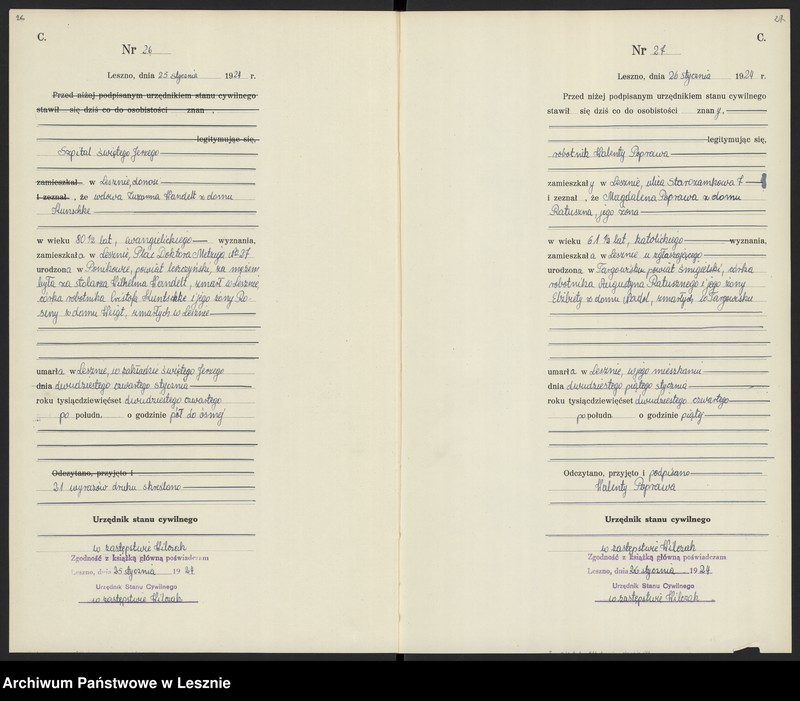 26
C.
Nr 26
Leszno, dnia 25 stycznia 1924 r.
Przed niżej podpisanym urzędnikiem stanu cywilnego
stawił się dziś co do osobistości znan ,
legitymując się,
Szpital świętego Jerzego
zamieszkał w Lesznie, donosi
i zeznał , że wdowa Zuzanna Handelt z domu
Kunschke
w wieku 80 ½ lat, ewangielickiego wyznania,
zamieszkała w Lesznie, Plac Doktora Metziga № 27
urodzona w Ponikowie, powiat leszczyński, za mężem
była za stolarza Wilhelma Handelt, umarł w Lesznie
córka robotnika Cristofa Kuntschke i jego żony Ro-
siny z domu Weigt, umarłych w Lesznie
umarła w Lesznie, w zakładzie świętego Jerzego
dnia dwudziestego czwartego stycznia
roku tysiącdziewięćset dwudziestego czwartego
po połudn. o godzinie pół do ósmej
Odczytano, przyjęto i
21 wyrazów druku skreślono
Urzędnik stanu cywilnego
w zastępstwie Wilczak
Zgodność z książką główną poświadczam
Leszno, dnia 25 stycznia 1924
Urzędnik Stanu Cywilnego
w zastępstwie Wilczak
27
C.
Nr 27
Leszno, dnia 26 stycznia 1924 r.
Przed niżej podpisanym urzędnikiem stanu cywilnego
stawił się dziś co do osobistości znany,
legitymując się,
robotnik Walenty Poprawa
zamieszkały w Lesznie, ulica Starozamkowa 7
i zeznał , że Magdalena Poprawa z domu
Ratuszna, jego żona
w wieku 61 ½ lat, katolickiego wyznania,
zamieszkała w Lesznie u zgłaszającego
urodzona w Targowisku powiat śmigielski, córka
robotnika Augustyna Ratusznego i jego żony
Elżbiety z domu Nadol, umarłych w Targowisku
umarła w Lesznie, w jego mieszkaniu
dnia dwudziestego piątego stycznia
roku tysiącdziewięćset dwudziestego czwartego
po połudn. o godzinie piątej
Odczytano, przyjęto i podpisano
Walenty Poprawa
Urzędnik stanu cywilnego
w zastępstwie Wilczak
Zgodność z książką główną poświadczam
Leszno, dnia 26 stycznia 1924
Urzędnik Stanu Cywilnego
w zastępstwie Wilczak
Archiwum Państwowe w Lesznie